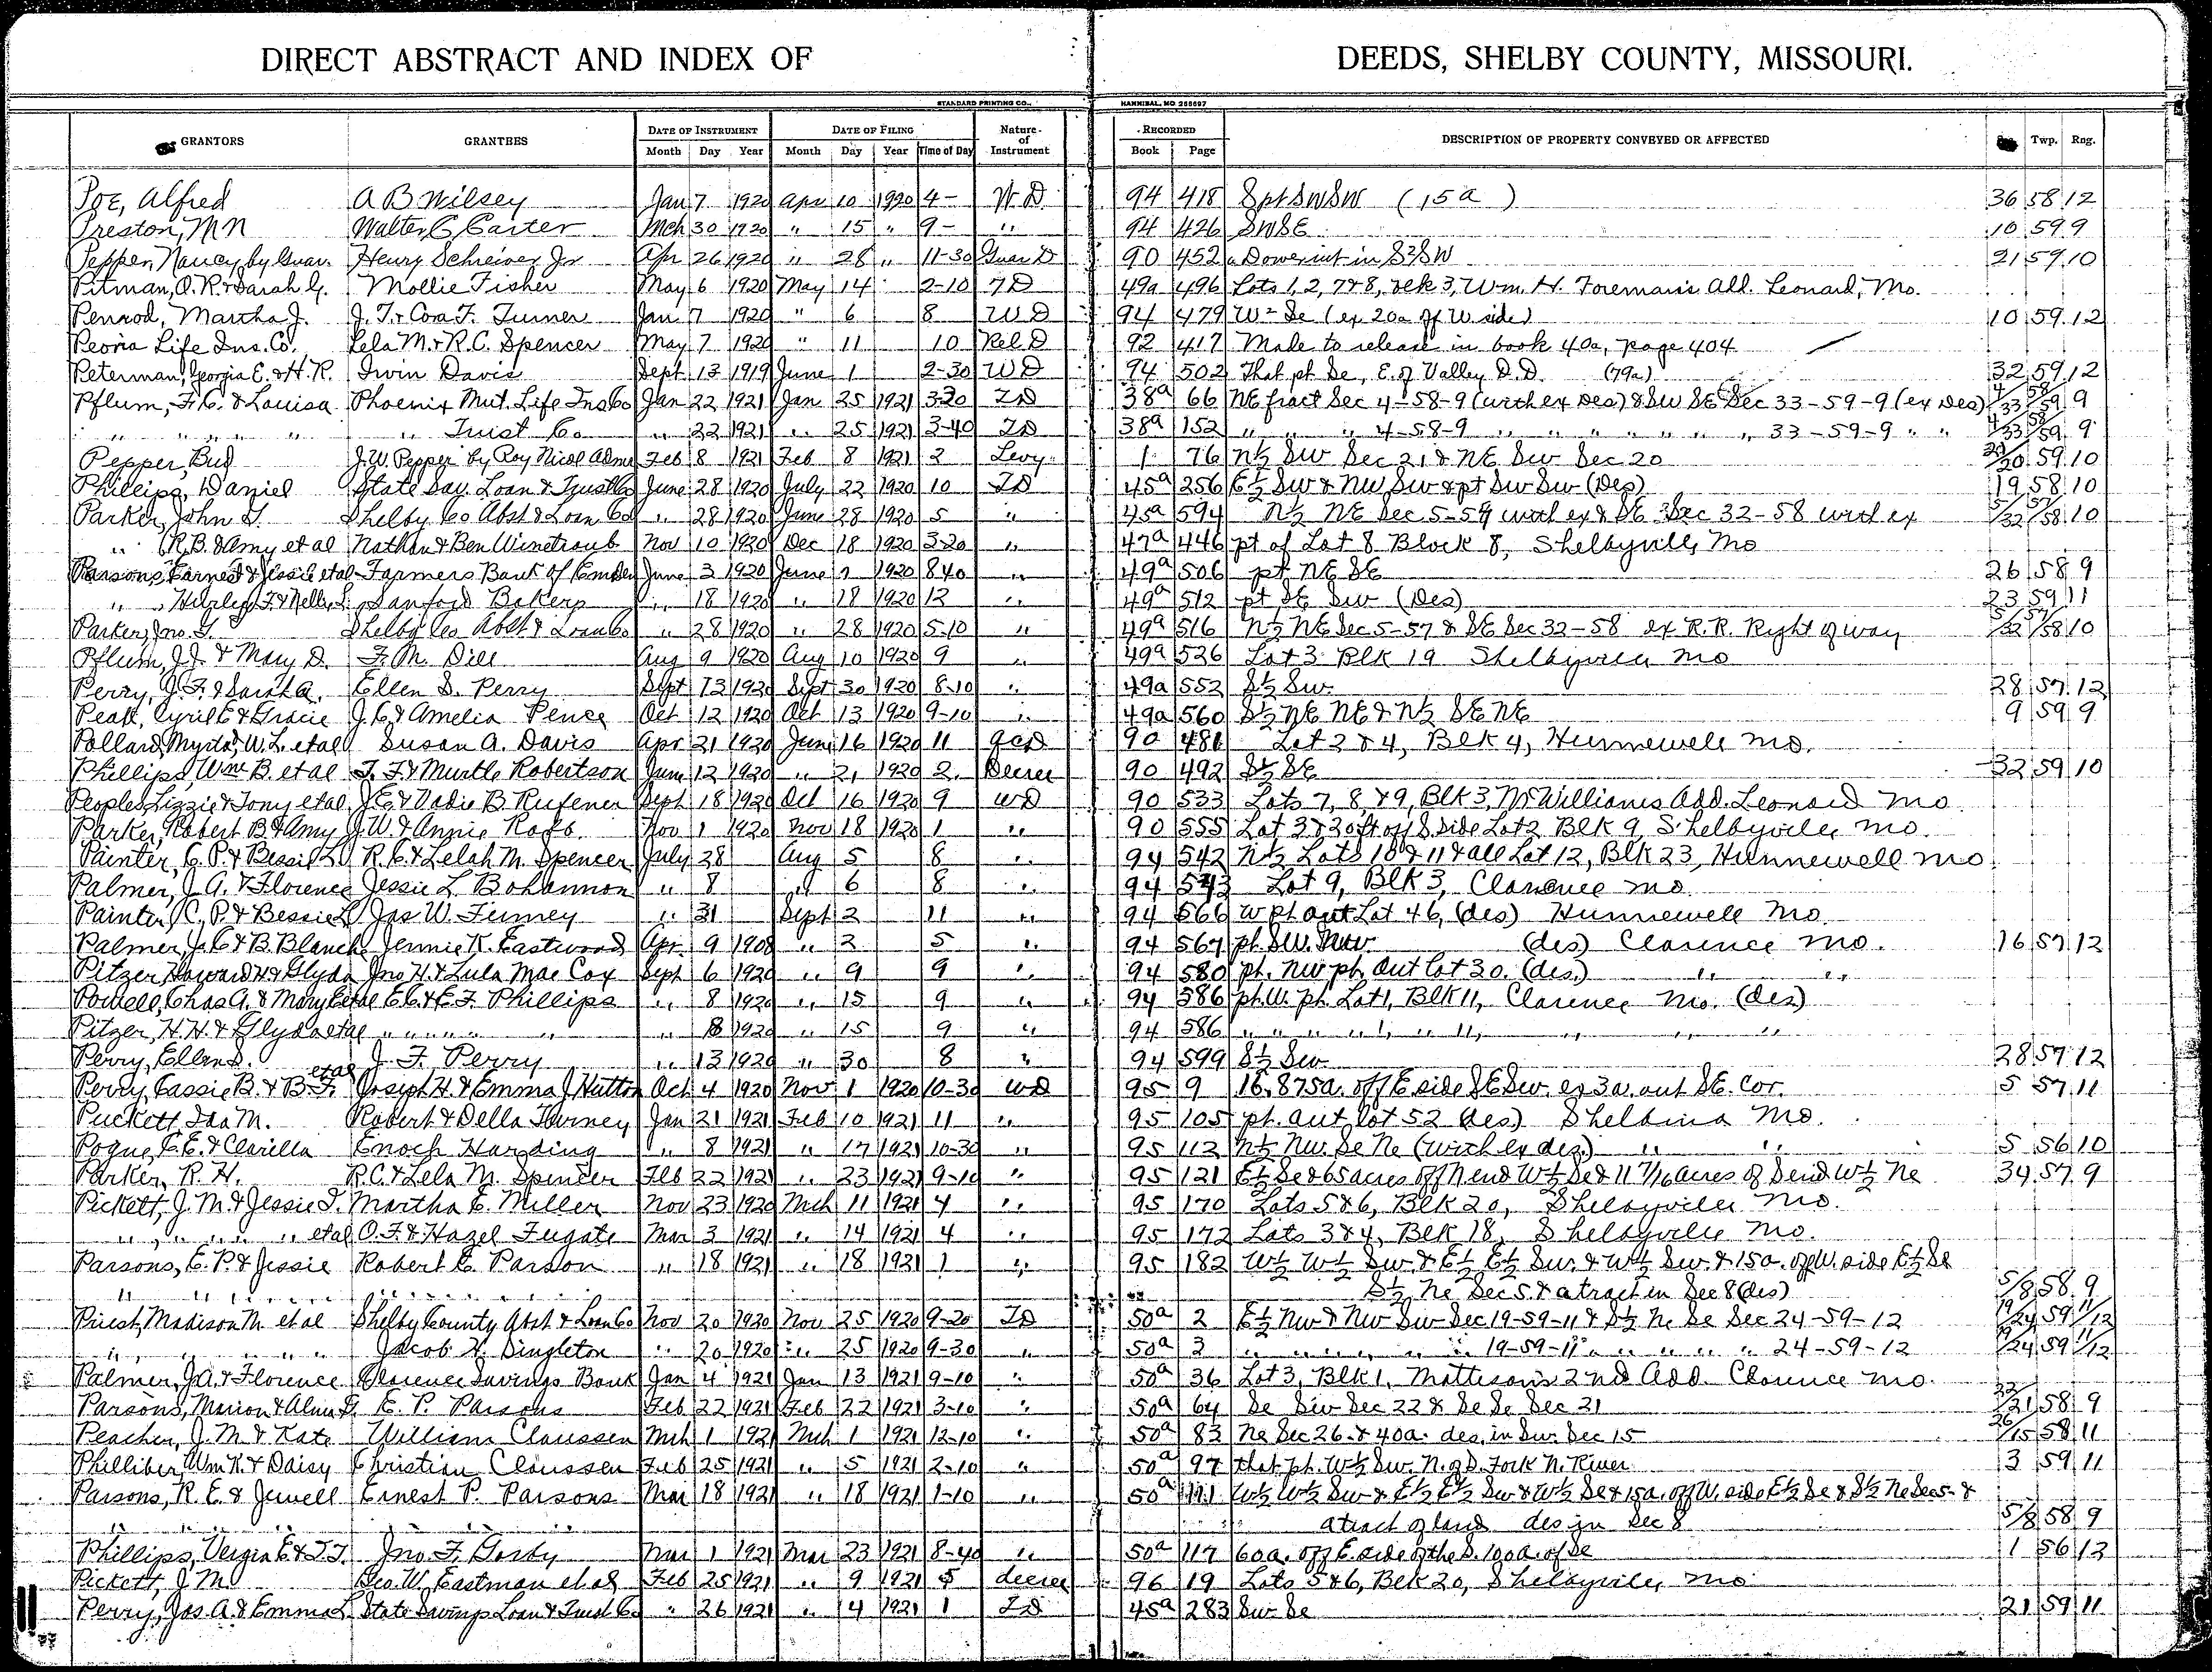 DIRECT ABSTRACT AND INDEX OF DEEDS, SHELBY COUNTY, MISSOURI.
STANDARD PRINTING CO., HANNIBAL, MO 255697
GRANTORS GRANTEES DATE OF INSTRUMENT DATE OF FILING Nature of Instrument RECORDED DESCRIPTION OF PROPERTY CONVEYED OR AFFECTED Twp. Rng.
Month Day Year Month Day Year Time of Day Book Page
Poe, Alfred A B Wilsey Jan 7 1920 Apr 10 1920 4- W D 94 418 Spt SWSW (15a) 36 58 12
Preston, M N Walter C Carter Mch 30 1920 " 15 " 9- " 94 426 SWSE 10 59 9
Pepper, Nancy, by Guar. Henry Schreiver Jr Apr 26 1920 " 28 " 11-30 Guar D 90 452 Dower int in S½SW 21 59 10
Pitman, O. R. & Sarah G. Mollie Fisher May 6 1920 May 14 2-10 TD 49a 496 Lots 1, 2, 7 & 8, Blk 3, Wm. H. Foreman's Add. Leonard, Mo.
Penrod, Martha J. J. T. & Cora F. Turner Jan 7 1920 " 6 8 WD 94 479 W½ Se (ex 20a off W side) 10 59 12
Peoria Life Ins. Co. Lela M. & R. C. Spencer May 7 1920 " 11 10 Rel D 92 417 Made to release in book 40a, page 404
Peterman, Georgia E. & H. R. Irvin Davis Sept 13 1919 June 1 2-30 WD 94 502 That pt Se, E. of Valley D. D. (79a) 32 59 12
Pflum, F. C. & Louisa Phoenix Mut. Life Ins Co Jan 22 1921 Jan 25 1921 3-20 TD 38a 66 NE fract Sec 4-58-9 (with ex Des) & SW SE Sec 33-59-9 (ex Des) 4/33 58/59 9
" " " " " Trust Co. " 22 1921 " 25 1921 3-40 TD 38a 152 " " " 4-58-9 " " " " " " 33-59-9 " " 4/33 58/59 9
Pepper, Bud J. W. Pepper by Roy Nicol Adme Feb 8 1921 Feb 8 1921 2 Levy 1 76 N½ SW Sec 21 & NE SW Sec 20 21/20 59 10
Phillips, Daniel State Sav. Loan & Trust Co June 28 1920 July 22 1920 10 TD 45a 256 E½ SW & NW SW & pt SW SW (Des) 19 58 10
Parker, John T. Shelby Co Abst & Loan Co " 28 1920 June 28 1920 5 " 45a 594 N½ NE Sec 5-57 with ex & SE Sec 32-58 with ex 5/32 57/58 10
" (R. B. & Amy et al Nathan & Ben Winetraub Nov 10 1920 Dec 18 1920 3-20 " 47a 446 pt of Lot 8 Block 8, Shelbyville Mo
Parsons, Earnest & Jessie et al Farmers Bank of Emden June 3 1920 June 7 1920 8 40 " 49a 506 pt NE SE 26 58 9
" , Hurley F. & Nelly L. Sanford Bakers " 18 1920 " 18 1920 12 " 49a 512 pt SE SW (Des) 23 59 11
Parker, Jno. T. Shelby Co Abst & Loan Co " 28 1920 " 28 1920 5-10 " 49a 516 N½ NE Sec 5-57 & SE Sec 32-58 ex R. R. Right of way 5/32 57/58 10
Pflum, J. J. & Mary D. F. M. Dill Aug 9 1920 Aug 10 1920 9 " 49a 526 Lot 3 Blk 19 Shelbyville Mo
Perry, J. F. & Sarah A. Ellen S. Perry Sept 13 1920 Sept 30 1920 8-10 " 49a 552 S½ SW 28 57 12
Peak, Cyril E & Gracie J. C. & Amelia Pence Oct 12 1920 Oct 13 1920 9-10 " 49a 560 S½ NE NE & N½ SE NE 9 59 9
Pollard, Myrta, W. L. et al Susan A. Davis Apr 21 1920 June 16 1920 11 QCD 90 481 Lot 2 & 4, Blk 4, Hunnewell Mo.
Phillips, Wm B. et al T. F. & Murtle Robertson June 12 1920 " 21 1920 2 Decree 90 492 S½ SE 32 59 10
Peoples, Lizzie & Tony et al J. E. & Vadie B. Rufener Sept 18 1920 Oct 16 1920 9 WD 90 533 Lots 7, 8 & 9, Blk 3, McWilliams Add. Leonard Mo
Parker, Robert B. & Amy J. W. & Annie Roff Nov 1 1920 Nov 18 1920 1 " 90 555 Lot 3 & 20ft off S. side Lot 2 Blk 9, Shelbyville, Mo.
Painter, C. P. & Bessie L. R. C. & Lelah M. Spencer July 28 Aug 5 8 " 94 542 N½ Lots 10 & 11 & all Lot 12, Blk 23, Hunnewell Mo
Palmer, J. A. & Florence Jessie L. Bohannon " 8 " 6 8 " 94 543 Lot 9, Blk 3, Clarence Mo
Painter, C. P. & Bessie L Jas W. Finney " 31 Sept 2 11 " 94 566 W pt out Lot 46, (des) Hunnewell Mo
Palmer, J. C. & B. Blanch Jennie K. Eastwood Apr. 9 1908 " 2 5 " 94 567 pt. SW. NW. (des) Clarence Mo. 16 57 12
Pitzer, Howard H. & Glyda Jno H. & Lula Mae Cox Sept 6 1920 " 9 9 " 94 580 pt. NW pt. Out Lot 30. (des.) " "
Powell, Chas A. & Mary E et al E. C. & E. F. Phillips " 8 1920 " 15 9 " 94 586 pt. W. pt. Lot 1, Blk 11, Clarence Mo. (des)
Pitzer, H. H. & Glyda et al " " " " " " 8 1920 " 15 9 " 94 586 " " " " 1, " 11, " " "
Perry, Ellen S. J. F. Perry " 13 1920 " 30 8 " 94 599 S½ SW 28 57 12
Perry, Cassie B. & B. F. et al Joseph H. & Emma J Hutton Oct 4 1920 Nov 1 1920 10-30 WD 95 9 16.875a. off E. side SE SW. ex 3a. out SE. Cor. 5 57 11
Puckett, Ida M. Robert & Della Forney Jan 21 1921 Feb 10 1921 11 " 95 105 pt. out lot 52 (des) Shelbina Mo.
Pogue, C. E. & Clarilla Enoch Harding " 8 1921 " 17 1921 10-30 " 95 112 N½ NW. Se Ne (with ex des.) " " 5 56 10
Parker, R. H. R. C. & Lela M. Spencer Feb 22 1921 " 23 1921 9-10 " 95 121 E½ Se & 65 acres off N end W½ Se & 11 7/16 acres of S end W½ Ne 34 57 9
Pickett, J. M. & Jessie T. Martha E. Miller Nov 23 1920 Mch 11 1921 4 " 95 170 Lots 5 & 6, Blk 20, Shelbyville Mo.
" " " " " et al O. F. & Hazel Fugate Mar 3 1921 " 14 1921 4 " 95 172 Lots 3 & 4, Blk 18, Shelbyville Mo.
Parsons, E. P. & Jessie Robert E. Parson " 18 1921 " 18 1921 1 " 95 182 W½ W½ SW. & E½ E½ SW. & W½ SW. & 15a. off W. side E½ Se
" " " " " " S½ Ne Sec 5. & a tract in Sec 8 (des) 5/8 58 9
Priest, Madison M. et al Shelby County Abst & Loan Co Nov 20 1920 Nov 25 1920 9-20 TD 50a 2 E½ NW & NW SW Sec 19-59-11 & S½ Ne Se Sec 24-59-12 19/24 59 11/12
" " " " " Jacob H. Singleton " 20 1920 " 25 1920 9-30 " 50a 3 " " " " " 19-59-11 " " " " " 24-59-12 19/24 59 11/12
Palmer, J. A. & Florence Clarence Savings Bank Jan 4 1921 Jan 13 1921 9-10 " 50a 36 Lot 3, Blk 1, Mattison's 2nd Add. Clarence Mo.
Parsons, Marion & Alma G. E. P. Parsons Feb 22 1921 Feb 22 1921 3-10 " 50a 64 Se SW Sec 22 & Se Se Sec 21 22/21 58 9
Peacher, J. M. & Kate William Claussen Mch 1 1921 Mch 1 1921 12-10 " 50a 83 Ne Sec 26 & 40a. des. in SW. Sec 15 26/15 58 11
Philliber, Wm K. & Daisy Christian Claussen Feb 25 1921 " 5 1921 2-10 " 50a 97 that pt. W½ SW. N. of S. Fork N. River 3 59 11
Parsons, R. E. & Jewell Ernest P. Parsons Mar 18 1921 " 18 1921 1-10 " 50a 111 W½ W½ SW & E½ E½ SW & W½ Se & 15a. off W. side E½ Se & S½ Ne Sec 5 &
" " " " " " a tract of land des in Sec 8 5/8 58 9
Phillips, Vergia E. & T. T. Jno. F. Gordy Mar 1 1921 Mar 23 1921 8-40 " 50a 117 60a. off E. side of the S. 100a. of Se 1 56 12
Pickett, J. M. Geo. W. Eastman et al Feb 25 1921 " 9 1921 5 decree 96 19 Lots 5 & 6, Blk 20, Shelbyville, Mo
Perry, Jas A. & Emma L. State Savings Loan & Trust Co. " 26 1921 " 4 1921 1 TD 45a 283 SW Se 21 59 11